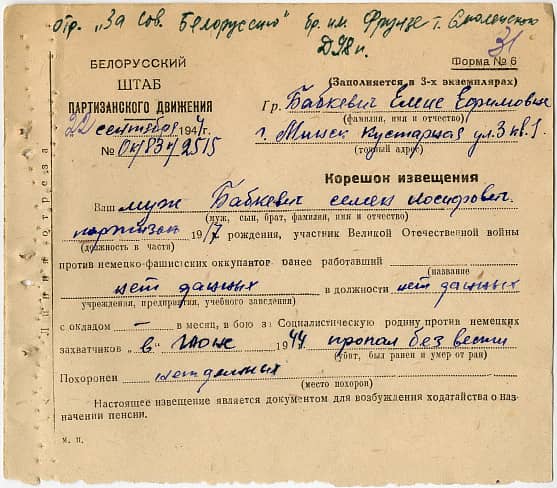 отр. „За Сов. Белоруссию" бр. им. Фрунзе т. Смоленскою
Д98п.
31
БЕЛОРУССКИЙ
ШТАБ
ПАРТИЗАНСКОГО ДВИЖЕНИЯ
22 сентября 1944г.
№ ок/83ч/2515
Форма № 6
(Заполняется в 3-х экземплярах)
Гр. Бабкевич Елене Ефимовне
(фамилия, имя и отчество)
г. Минск Кустарная ул. 3 кв. 1.
(точный адрес)
Корешок извещения
Ваш муж Бабкевич Семен Иосифович
(муж, сын, брат, фамилия, имя и отчество)
партизан 1917 рождения, участник Великой Отечественной войны
(должность в части)
против немецко-фашистских оккупантов ранее работавший
(название
нет данных в должности нет данных
учреждения, предприятия, учебного заведения)
с окладом — в месяц, в бою за Социалистическую родину против немецких
захватчиков „в" июне 1944 пропал без вести
(убит, был ранен и умер от ран)
Похоронен нет данных
(место похорон)
Настоящее извещение является документом для возбуждения ходатайства о на-
значении пенсии.
м. п.
Линия отреза